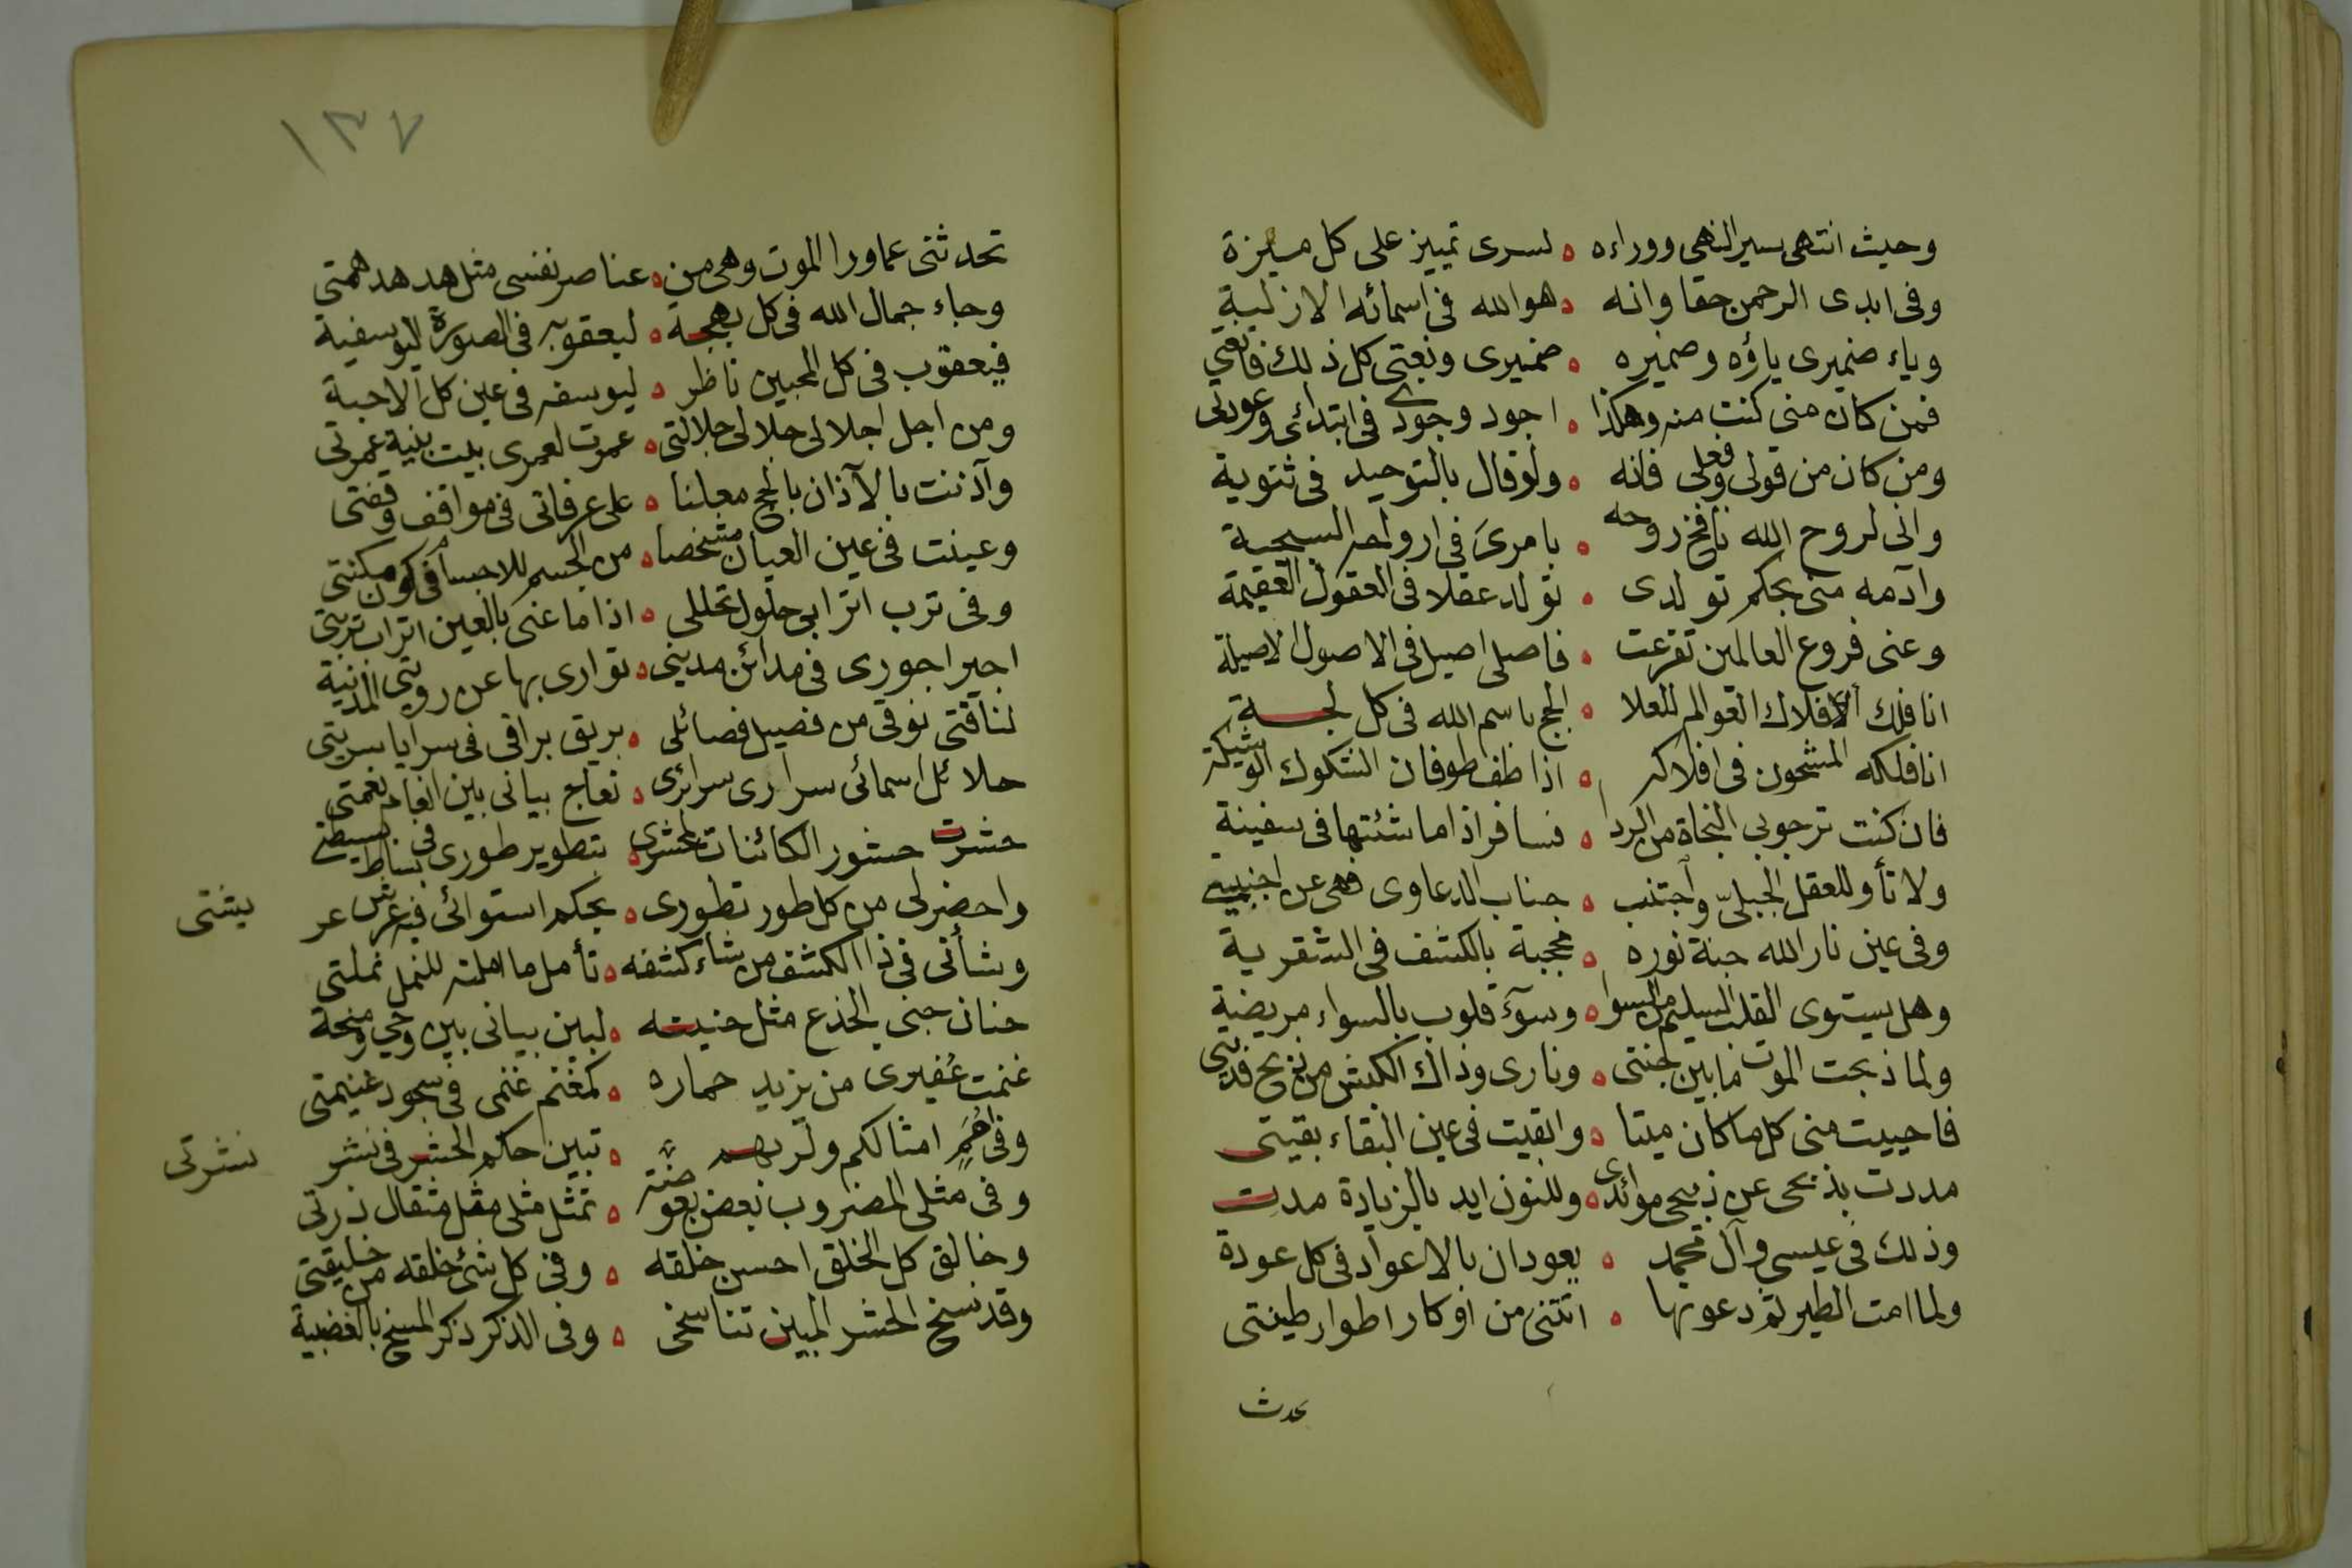 وحيث انتهى سير النهى ووراءه ه لسرى تمييز على كل ميزة
وفى ابدى الرحمن حقا وانه ه هو الله فى اسمائه الازلية
وياء ضميرى ياؤه وضميره ه ضميرى ونعتى كل ذلك فانعتى
فمن كان منى كنت منه وهكذا ه اجود وجودى فى ابتدائى وعودتى
ومن كان من قولى وفعلى فانه ه ولو قال بالتوحيد فى ثنوية
وانى لروح الله نافخ روحه ه بامرى فى ارواحه المسيحية
وآدمه منى بحكم تولدى ه تولد عقلا فى العقول العقيمة
وعنى فروع العالمين تفرعت ه فاصلى اصيل فى الاصول الاصيلة
انا فلك الافلاك العوالم للعلا ه الجج باسم الله فى كل لجة
انا فلكه المشحون فى افلاكه ه اذا طف طوفان الشكوك الوشيكة
فان كنت ترجو بى النجاة من الردا ه فسافر اذا ما شئتها فى سفينة
ولا تأو للعقل الجبلى واجتنب ه جناب الدعاوى فهى عن اجنبية
وفى عين نار الله جنة نوره ه محجبة بالكشف فى الشقرية
وهل يستوى القلب السليم من السوا ه وسوء قلوب بالسواء مريضة
ولما ذبحت الموت ما بين جنتى ه ونارى وذاك الكبش من ذبح فديتى
فاحييت منى كل ما كان ميتا ه وابقيت فى عين البقاء بقيتى
مددت بذبحى عن ذبيحى موائدى ه وللنون ايد بالزيادة مدت
وذلك فى عيسى وآل محمد ه يعودان بالاعواد فى كل عودة
ولما امت الطير ثم دعوتها ه اتتنى من اوكار اطوار طينتى
تحدث
١٣٧
تحدثنى عما ورا الموت وهى من ه عناصر نفسى مثل هدهد همتى
وجاء جمال الله فى كل بهجة ه ليعقوبه فى الصورة اليوسفية
فيعقوب فى كل المحبين ناظر ه ليوسفه فى عين كل الاحبة
ومن اجل اجلالى جلالى جلالتى ه عمرت لعمرى بيت بنية عمرتى
وآذنت بالآذان بالحج معلنا ه على عرفاتى فى مواقف وقفتى
وعينت فى عين العيان مشخصا ه من الجسم للاجسام فى كون مكنتى
وفى ترب اترابى حلول تحللى ه اذا ما عنى بالعين اتراب تربتى
اجير اجورى فى مدائن مدينى ه توارى بها عن رويتى المدنية
لناقتى نوقى من فصيل فصائلى ه بريق براقى فى سرايا سريتى
حلائل اسمائى سرارى سرائرى ه نعاج بيانى بين انعام نعمتى
حشرت حشور الكائنات لمحشرى ه بتطوير طورى فى بساط بسيطتى
واحضر لى من كل طور تطورى ه بحكم استوائى فيه عرش عريشتى
وشأنى فى ذا الكشف من شاء كشفه ه تأمل ما املته للنمل نملتى
حنان حنى الجذع مثل حنيته ه لبين بيانى بين وحى ومنحة
غنمت عفيرى من يزيد حماره ه كمغنم غنمى فى سجود غنيمتى
وفى امم امثالكم ولربهم ه تبين حكم الحشر فى نشر نشرتى
وفى مثلى المضروب بعض بعوضة ه تمثل مثلى مثل مثقال ذرتى
وخالق كل الخلق احسن خلقه ه وفى كل شئ خلقه من خليقتى
وقد نسخ الحشر المبين تناسخى ه وفى الذكر ذكر المسخ بالغضبية